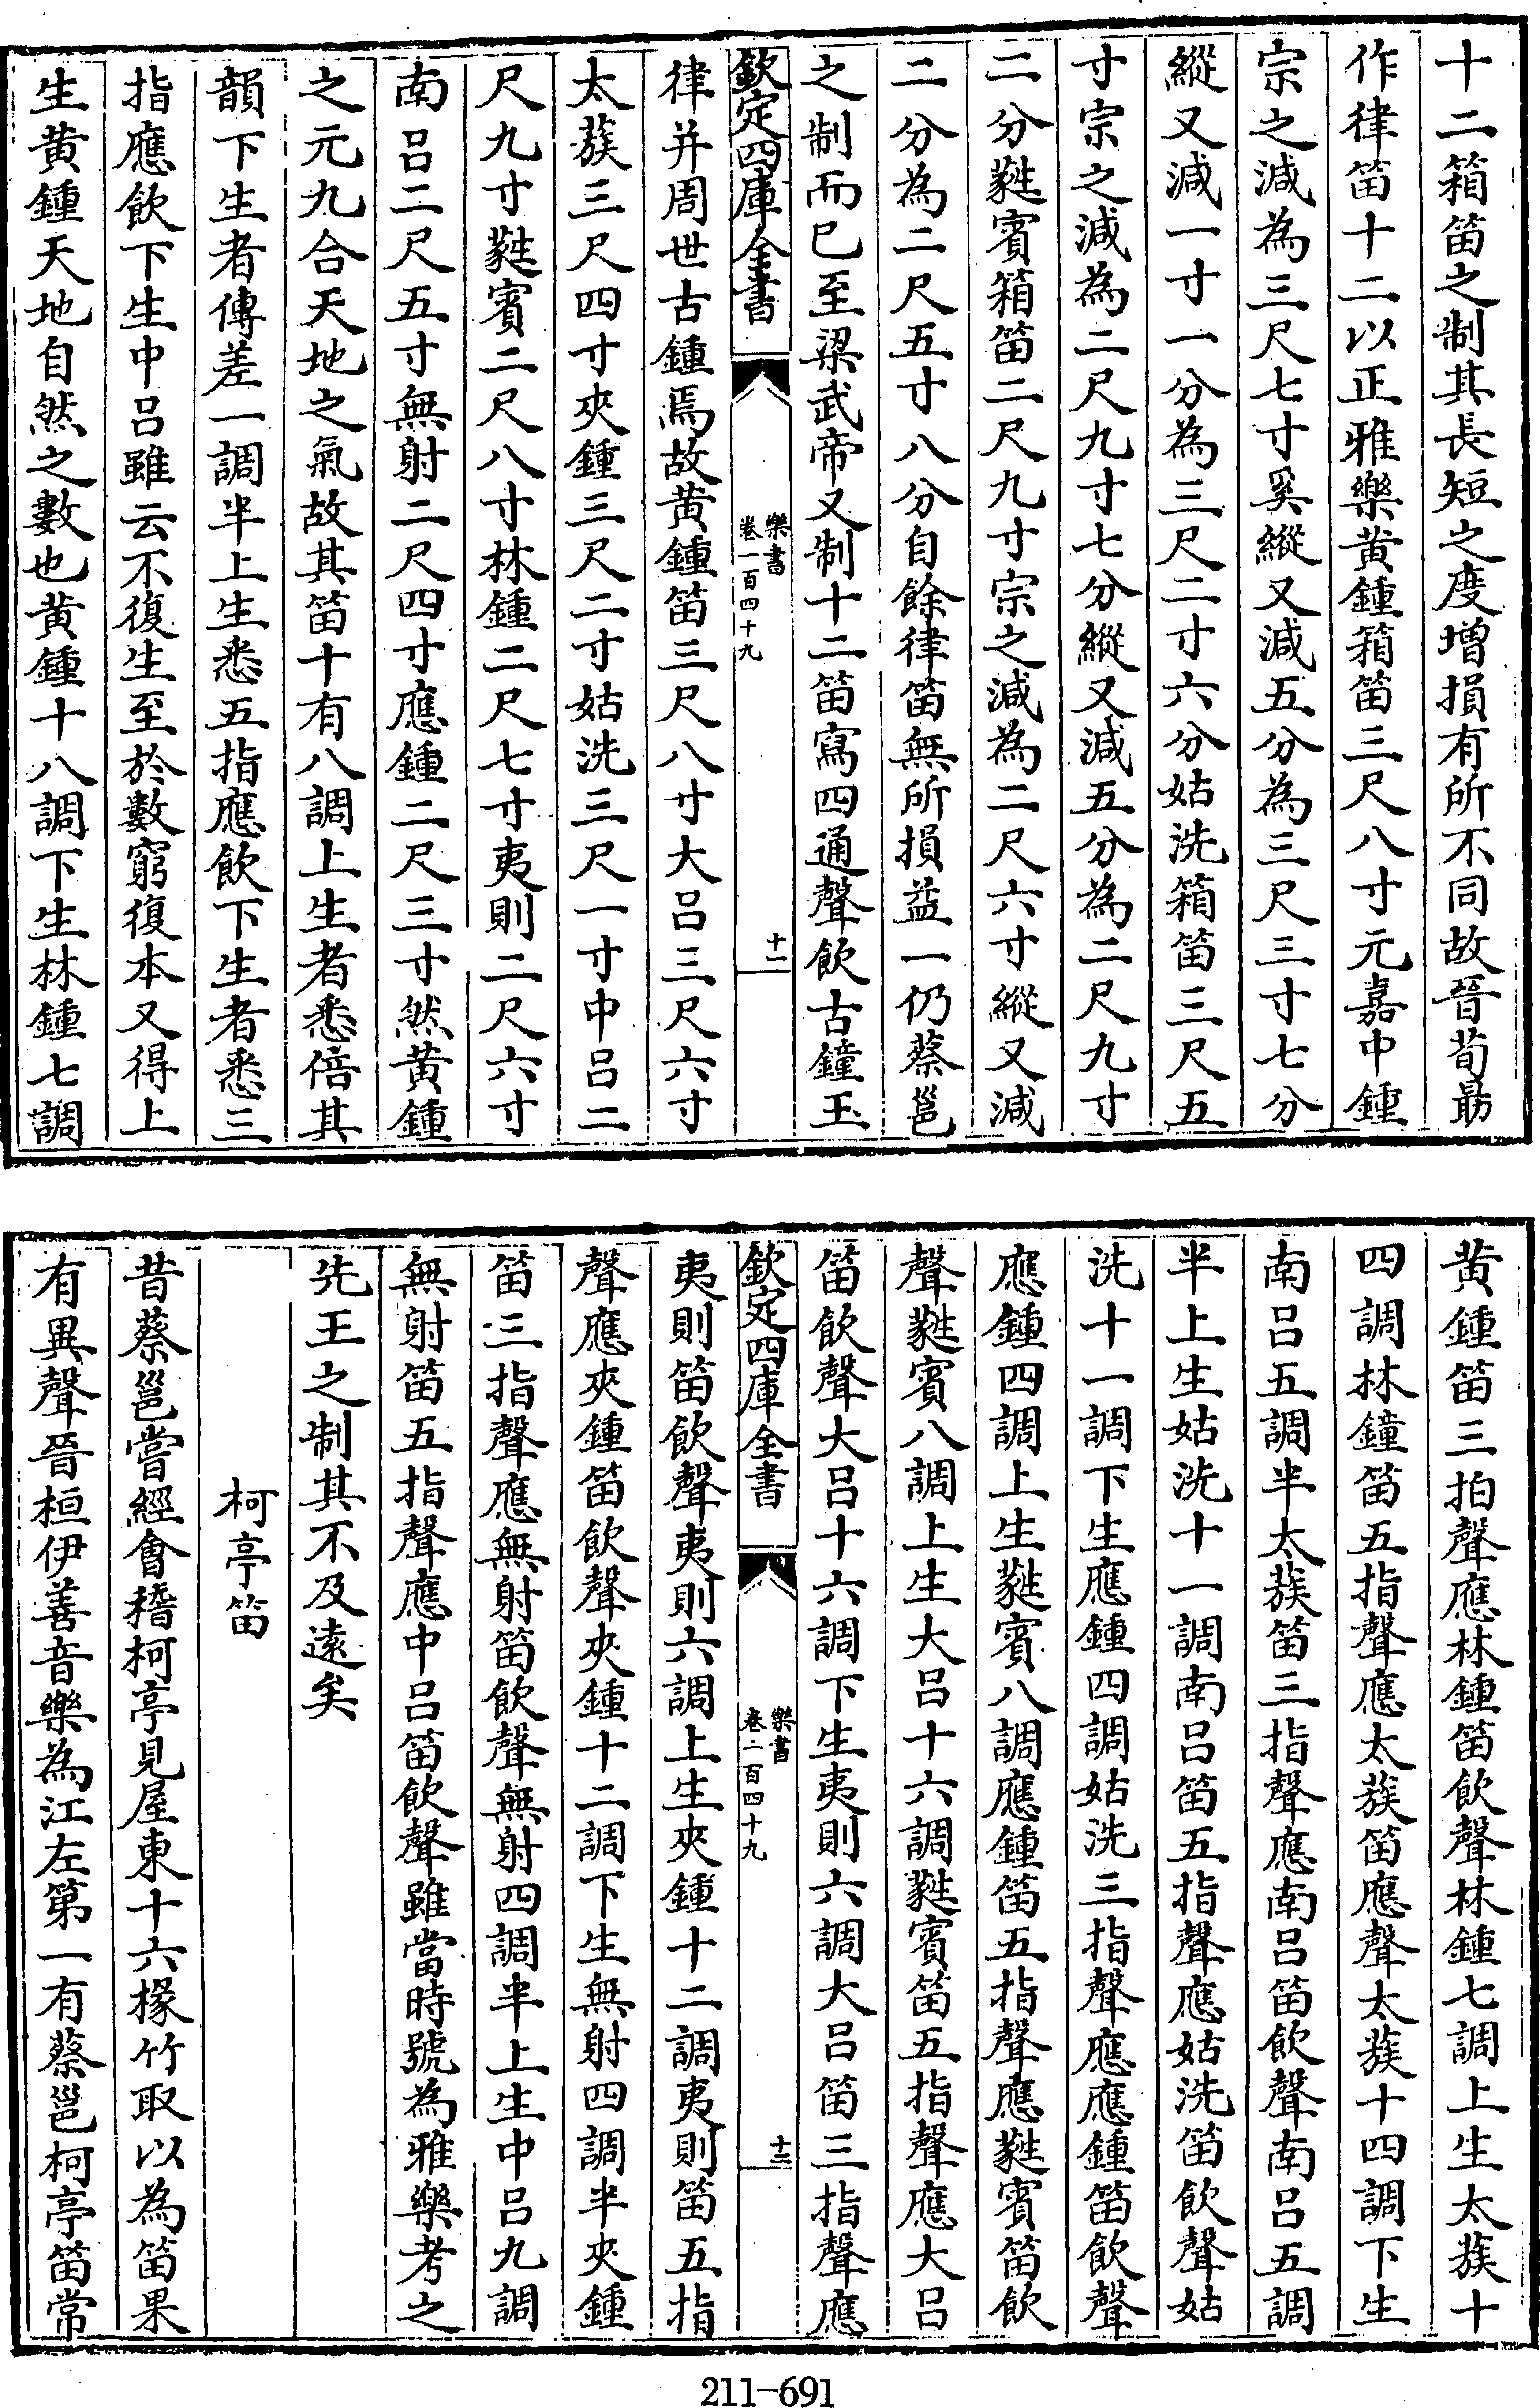 十二箱笛之制其長短之度增損有所不同故晉荀勗
作律笛十二以正雅樂黄鍾箱笛三尺八寸元嘉中鍾
宗之減為三尺七寸奚縱又減五分為三尺三寸七分
縱又減一寸一分為三尺二寸六分姑洗箱笛三尺五
寸宗之減為二尺九寸七分縱又減五分為二尺九寸
二分蕤賓箱笛二尺九寸宗之減為二尺六寸縱又減
二分為二尺五寸八分自餘律笛無所損益一仍蔡邕
之制而已至梁武帝又制十二笛寫四通聲飲古鐘玉
欽定四庫全書
樂書
卷一百四十九
十一
律并周世古鍾焉故黄鍾笛三尺八寸大呂三尺六寸
太蔟三尺四寸夾鍾三尺二寸姑洗三尺一寸中呂二
尺九寸蕤賓二尺八寸林鍾二尺七寸夷則二尺六寸
南呂二尺五寸無射二尺四寸應鍾二尺三寸然黄鍾
之元九合天地之氣故其笛十有八調上生者悉倍其
韻下生者傳差一調半上生悉五指應飲下生者悉三
指應飲下生中呂雖云不復生至於數窮復本又得上
生黄鍾天地自然之數也黄鍾十八調下生林鍾七調
黄鍾笛三拍聲應林鍾笛飲聲林鍾七調上生太蔟十
四調林鐘笛五指聲應太蔟笛應聲太蔟十四調下生
南呂五調半太蔟笛三指聲應南呂笛飲聲南呂五調
半上生姑洗十一調南呂笛五指聲應姑洗笛飲聲姑
洗十一調下生應鍾四調姑洗三指聲應應鍾笛飲聲
應鍾四調上生蕤賓八調應鍾笛五指聲應蕤賓笛飲
聲蕤賓八調上生大呂十六調蕤賓笛五指聲應大呂
笛飲聲大呂十六調下生夷則六調大呂笛三指聲應
欽定四庫全書
樂書
卷一百四十九
十二
夷則笛飲聲夷則六調上生夾鍾十二調夷則笛五指
聲應夾鍾笛飲聲夾鍾十二調下生無射四調半夾鍾
笛三指聲應無射笛飲聲無射四調半上生中呂九調
無射笛五指聲應中呂笛飲聲雖當時號為雅樂考之
先王之制其不及遠矣
柯亭笛
昔蔡邕嘗經會稽柯亭見屋東十六椽竹取以為笛果
有異聲晉桓伊善音樂為江左第一有蔡邕柯亭笛常
211-691